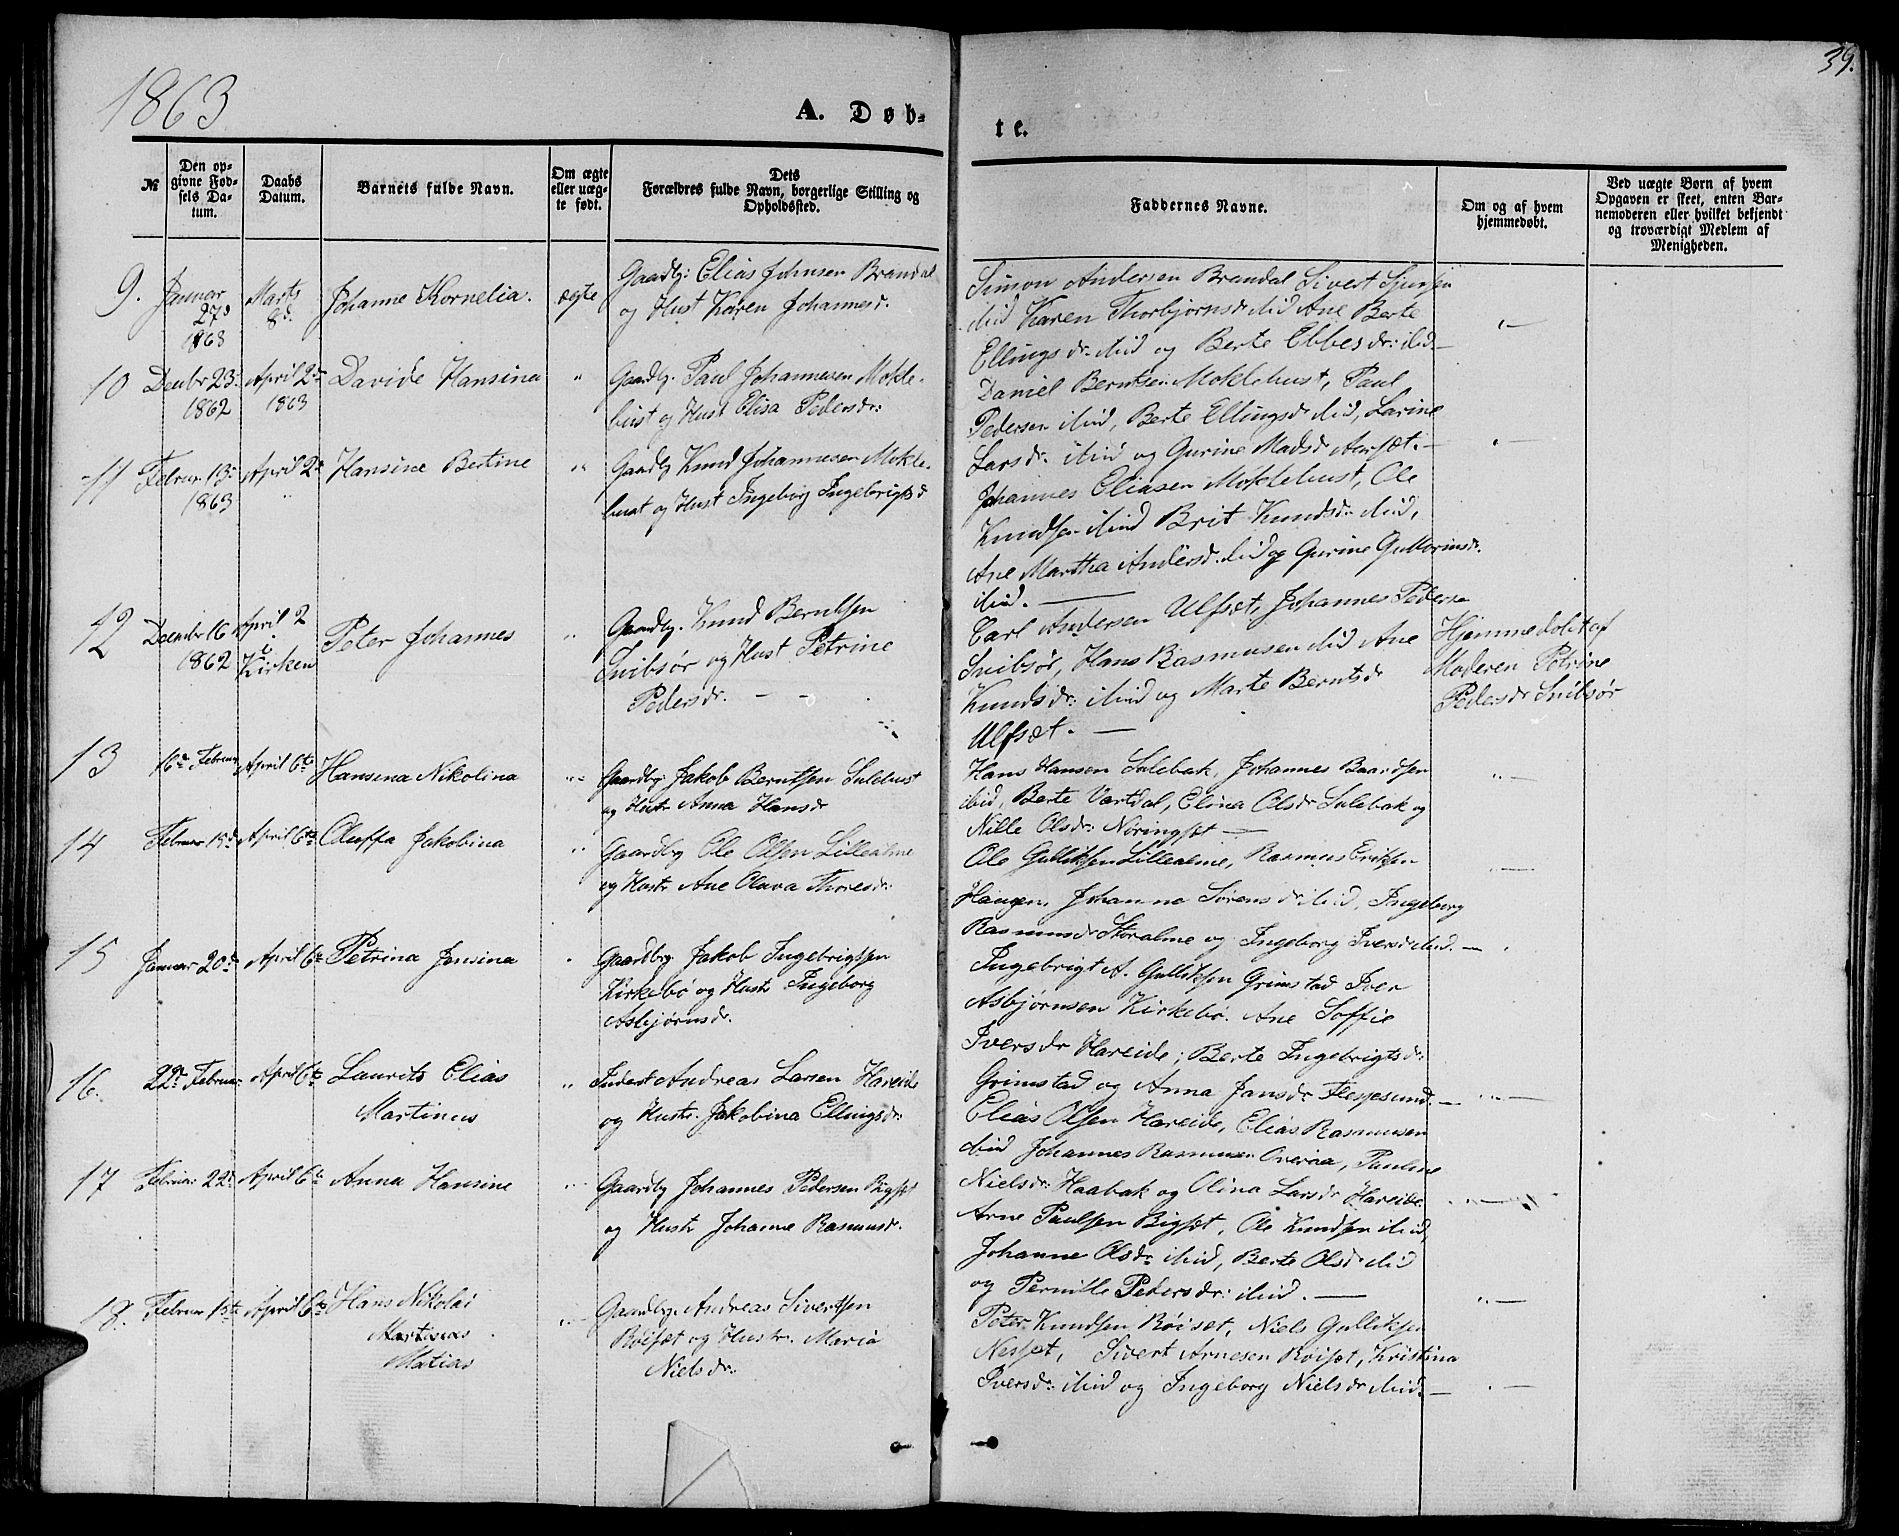 1863
A. Døb-
te.
39.
№
Den op-
givne Fød-
sels Da-
tum.
Daabs
Datum.
Barnets fulde Navn.
Om ægte
eller uæg-
te født.
Dets
Forældres fulde Navn, borgerlige Stilling og
Opholdssted.
Faddernes Navne.
Om og af hvem
hjemmedøbt.
Ved uægte Børn af hvem
Opgaven er skeet, enten Bar-
nemoderen eller hvilket bekjendt
og troværdigt Medlem af
Menigheden.
9.
Januar
27d
1863
Marts
8d.
Johanne Kornelia.
ægte
Gaardbr: Elias Johnsen Brandal
og Hust Karen Johannesd.
Simon Andersen Brandal Sivert
ibid Karen Thorbjørnsdr ibid Ane Berte
Ellingsdr. ibid og Berte Ebbesdr: ibid.—
10
Decbr 23.
1862
April 2d
1863
Davide Hansina
"
Gaardbr. Paul Johannesen Mokle-
bust og Hust Elisa Pedersdr:
Daniel Berntsen Moklebust, Paul
Pedersen ibid, Berte Ellingsdr ibid, Larine
Larsdr. ibid og Gurine Madsdr Aarsæt.—
11
Februr. 13.
1863
April 2d
Hansine Bertine
"
Gaardbr Knud Johannesen Mokle-
bust og Hust Ingeborg Ingebrigtsd
Johannes Eliasen Moklebust, Ole
Knudsen ibid Brit Knudsdr ibid,
Ane Martha Andersdr. ibid og Gurine Guttormsdr.
ibid. —
12
Decembr 16
1862
April 2
i
Kirken
Peter Johannes
"
Gaardbr. Knud Berntsen
Snibsør og Hust Petrine
Pedersdr. — —
Carl Andersen Ulfsæt, Johannes Pedersen
Snibsør, Hans Rasmusen ibid Ane
Knudsdr: ibid og Marte Berntsdr
Ulfsæt. —
Hjemmedøbt af
Moderen Petrine
Pedersdr Snibsør
13
16d Februar
April 6te
Hansena Nikolina
"
Gaardbr: Jakob Berntsen Sulebust
og Hustr Anna Hansdr
Hans Hansen Sulebak, Johannes Baardsen
ibid, Berte Vartdal, Elina Olsdr Sulebak og
Nille Olsdr: Nøringset —
14
Februar 15d
April 6te
Oluffa Jakobina
"
Gaardbr Ole Olsen Lillealme
og Hustr Ane Oluva Thoresdr:
Ole Gulliksen Lillealme, Rasmus Eriksen
Haugen, Johanna Sørensdr ibid, Ingeborg
Rasmusdr Storalme og Ingeborg Iversdr ibid.—
15
Januar 20d
April 6te
Petrina Jansina
"
Gaardbr. Jakob Ingebrigtsen
Kirkebø og Hustr Ingeborg
Asbjørnsdr.
Ingebrigt A. Gulliksen Grimstad Iver
Asbjørnsen Kirkebø. Ane Soffie
Iversdr Hareide; Berte Ingebrigtsdr:
Grimstad og Anna Jansdr Flessesund.—
16.
22de Februar
April 6te
Laurits Elias
Martinus
"
Inderst Andreas Larsen Hareide
og Hustr. Jakobina Ellingsdr:
Elias Olsen Hareide, Elias Rasmusen
ibid Johannes Rasmusen Overaa, Pauline
Nielsdr: Haabak og Olina Larsdr Hareide
17
Februar 22d
April 6te
Anna Hansine
"
Gaardbr Johannes Pedersen Rigset
og Hustr Johanne Rasmusdr.
Arne Paulsen Bigset, Ole Knudsen ibid,
Johanne Olsdr ibid, Berte Olsdr ibid
og Pernille Pedersdr: ibid. —
18.
Februar 15te
April 6te
Hans Nikolai
Martinus
Matias
"
Gaardbr. Andreas Sivertsen
Røiset og Hustr. Maria
Nielsdr:
Peter Knudsen Røiset, Niels Gulliksen
Nesset, Sivert Arnesen Røiset, Kristina
Iversdr: ibid og Ingeborg Nielsdr ibid.—